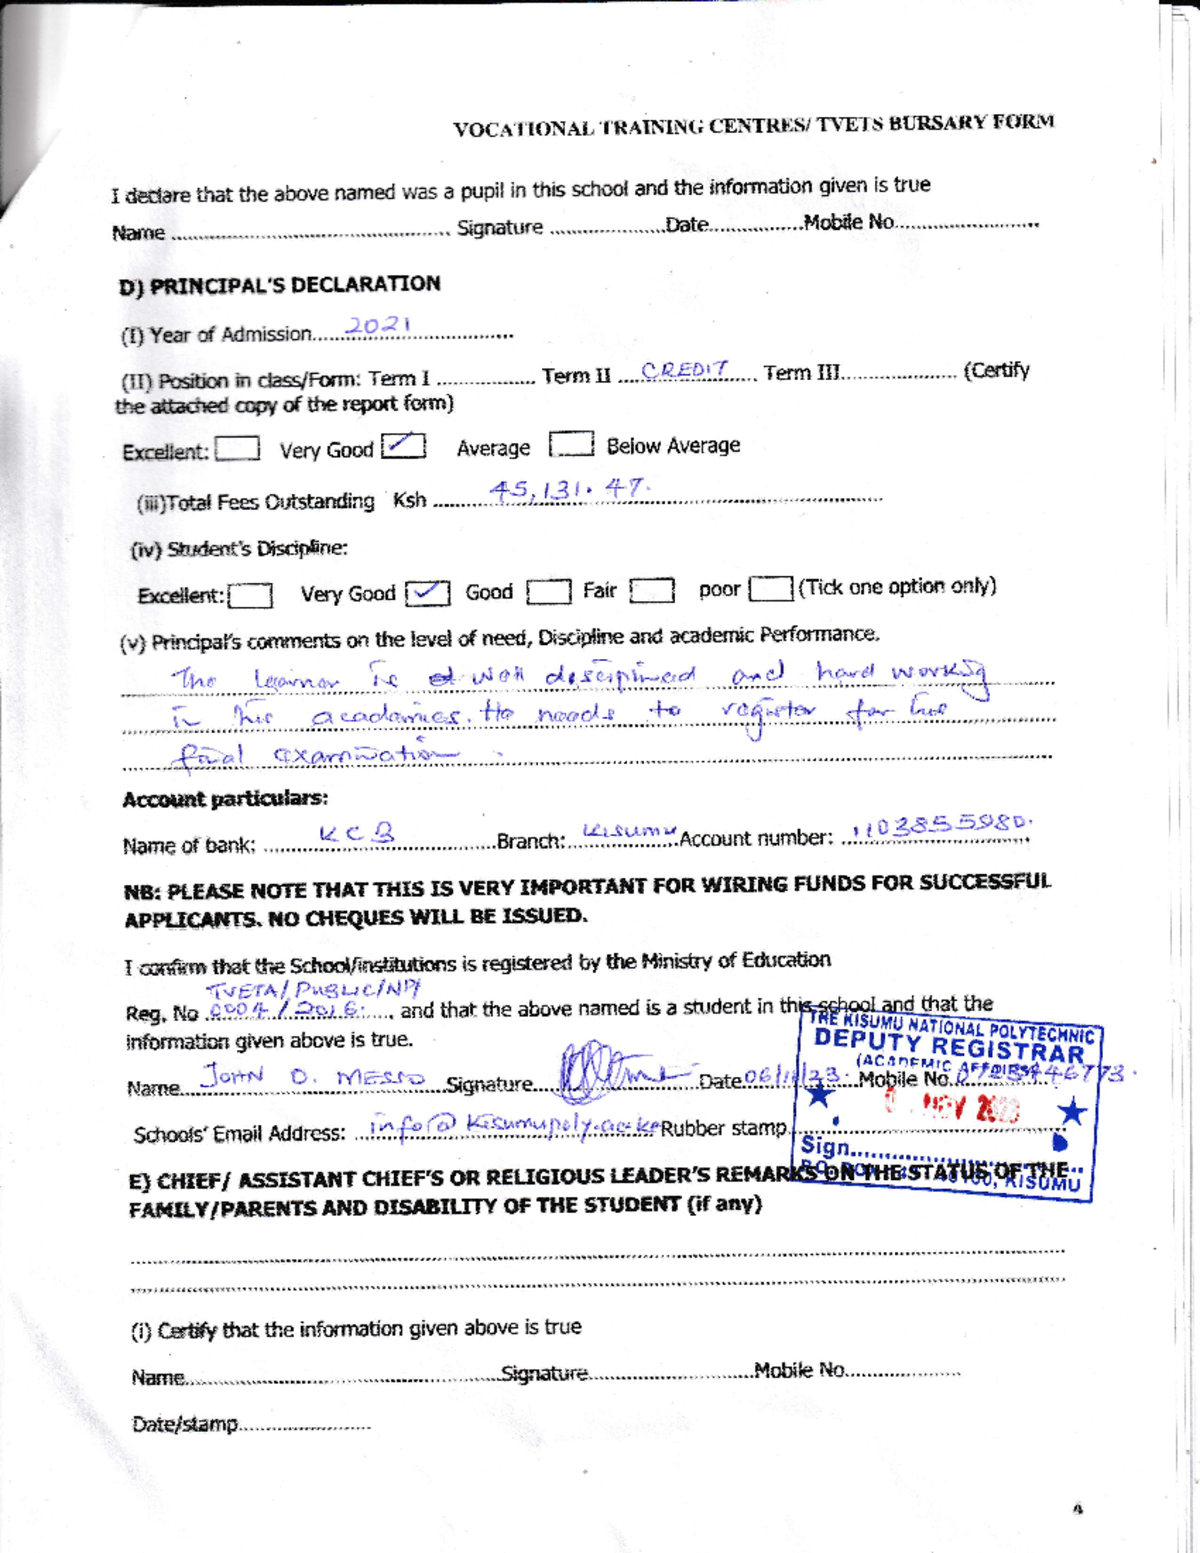 VOCATIONAL TRAINING CENTRES/ TVETS BURSARY FORM
I declare that the above named was a pupil in this school and the information given is true
Name .................... Signature ....................Date................Mobile No....................
D) PRINCIPAL'S DECLARATION
(I) Year of Admission.....2021....................
(II) Position in class/Form: Term I ................ Term II ....CREDIT.... Term III.................... (Certify
the attached copy of the report form)
Excellent: Very Good ✓ Average Below Average
(iii)Total Fees Outstanding Ksh ........45,131.47.....................
(iv) Student's Discipline:
Excellent: Very Good ✓ Good Fair poor (Tick one option only)
(v) Principal's comments on the level of need, Discipline and academic Performance.
The learner is well desciplined and hard working
in his academics. He needs to register for his
final examination.
Account particulars:
Name of bank: ........KCB........Branch:..Kisumu..Account number: ..1103855980...
NB: PLEASE NOTE THAT THIS IS VERY IMPORTANT FOR WIRING FUNDS FOR SUCCESSFUL
APPLICANTS. NO CHEQUES WILL BE ISSUED.
I confirm that the School/institutions is registered by the Ministry of Education
TVETA/PUBLIC/NP/
Reg. No 0004/2016...., and that the above named is a student in this school and that the
information given above is true.
THE KISUMU NATIONAL POLYTECHNIC
DEPUTY REGISTRAR
(ACADEMIC AFFAIRS)
Name..JOHN O. MESSO..Signature............Date 06/11/23. Mobile No.
NOV 2023
Schools' Email Address: ..info@kisumupoly.ac.ke Rubber stamp....................
Sign....................
KISUMU
E) CHIEF/ ASSISTANT CHIEF'S OR RELIGIOUS LEADER'S REMARKS ON THE STATUS OF THE
FAMILY/PARENTS AND DISABILITY OF THE STUDENT (if any)
(i) Certify that the information given above is true
Name....................Signature....................Mobile No....................
Date/stamp....................
4